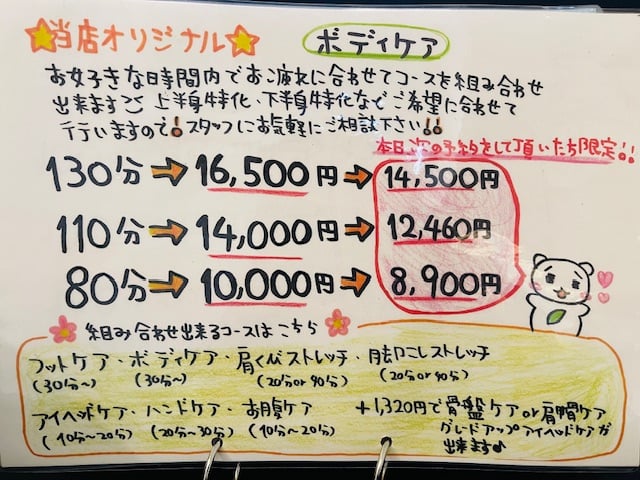 当店オリジナル ボディケア
お好きな日時間内でお疲れに合わせてコースを組み合わせ
出来ます♡ 上半身特化・下半身特化などご希望に合わせて
行いますので！スタッフにお気軽にご相談下さい!!
本日次の予約をして頂いたら限定!!
130分→16,500円→14,500円
110分→14,000円→12,460円
80分→10,000円→8,900円
組み合わせ出来るコースはこちら
フットケア・ボディケア・肩くびストレッチ・肩こしストレッチ
(30分～) (30分～) (20分or40分) (20分or40分)
アイヘッドケア・ハンドケア・お腹ケア
(10分～20分) (20分～30分) (10分～20分)
+1,320円で骨盤ケアor肩胛ケア
グレードアップアイヘッドケアが
出来ます♪